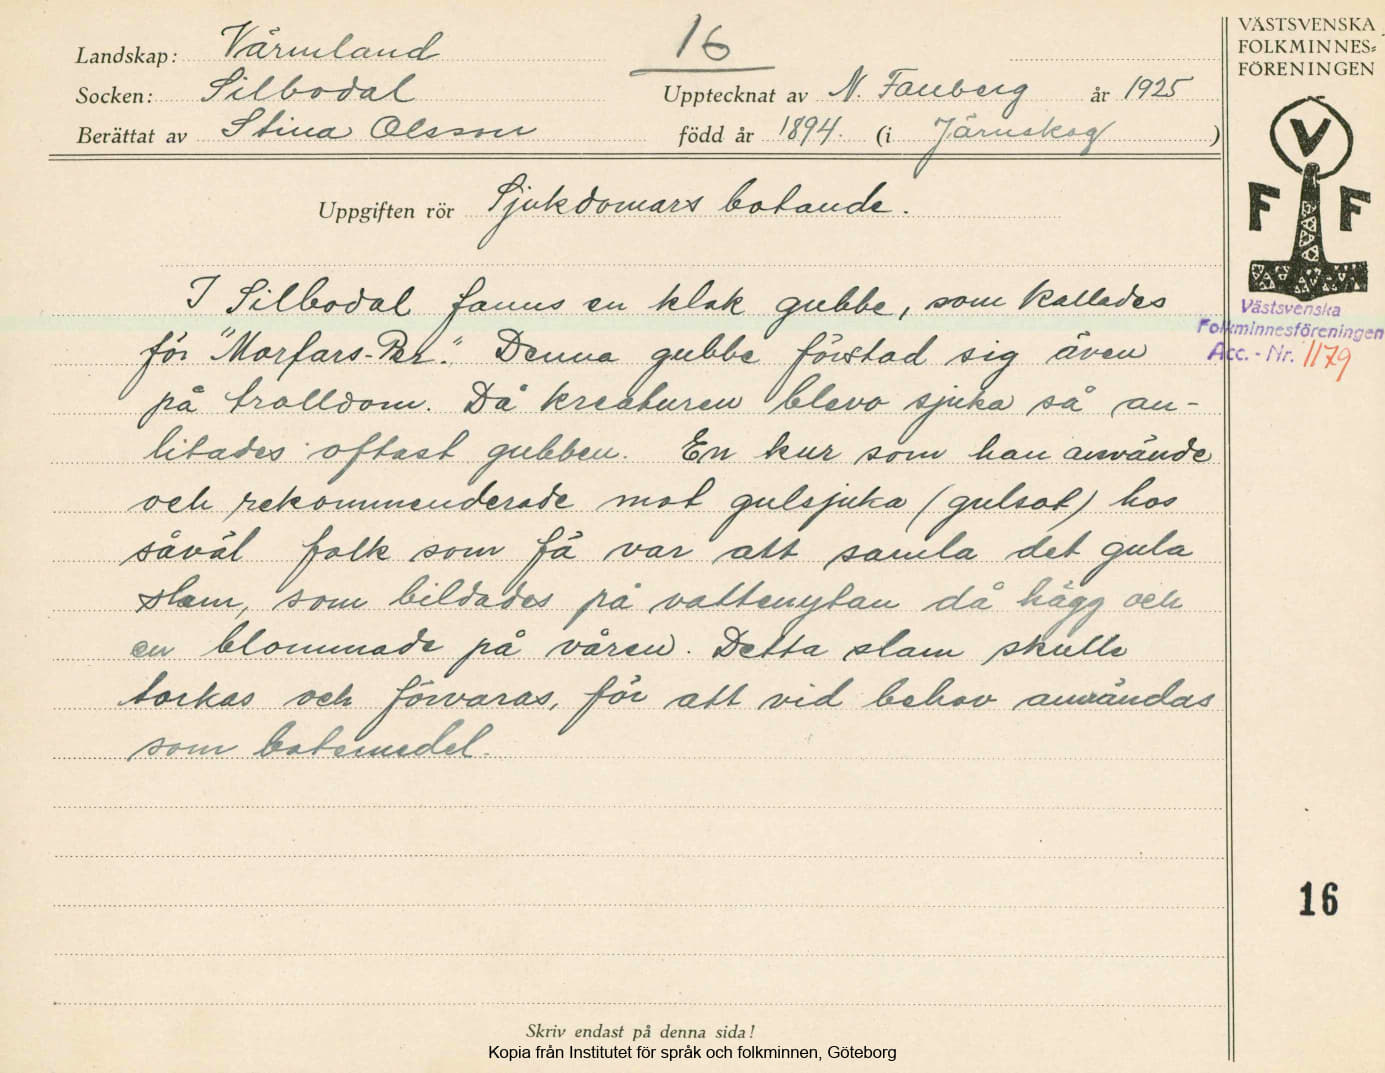 16
Landskap: Värmland
Socken: Silbodal
Upptecknat av N. Fauberg år 1925
Berättat av Stina Olsson född år 1894. (i Järnskog)
Uppgiften rör Sjukdomars botande.
I Silbodal fanns en klok gubbe, som kallades
för "Morfars-Per". Denna gubbe förstod sig även
på trolldom. Då kreaturen blevo sjuka så an-
litades oftast gubben. En kur som han använde
och rekommenderade mot gulsjuka (gulsot) hos
såväl folk som fä var att samla det gula
slam, som bildades på vattenytan då hägg och
en blommade på våren. Detta slam skulle
torkas och förvaras, för att vid behov användas
som botemedel.
Skriv endast på denna sida!
Kopia från Institutet för språk och folkminnen, Göteborg
VÄSTSVENSKA
FOLKMINNES=
FÖRENINGEN
V
F F
Västsvenska
Folkminnesföreningen
Acc. - Nr. 1179
16